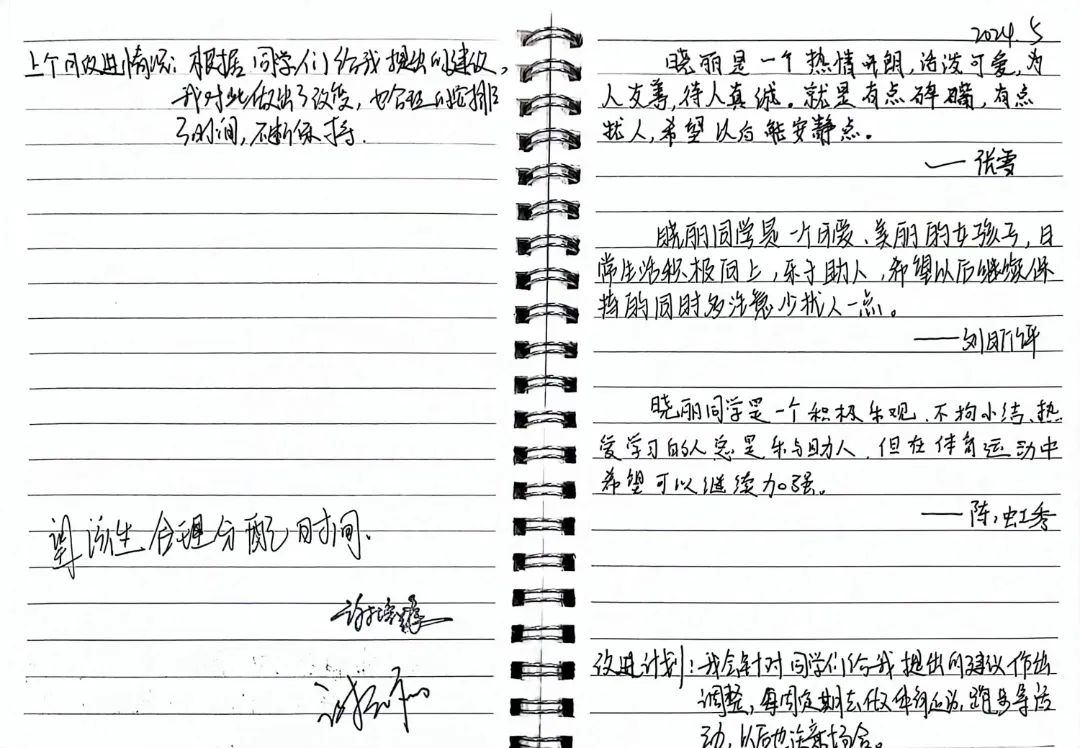 上个月改进情况：根据同学们给我提出的建议，
我对此做出了改变，也合理的安排
了时间，不断保持.
望该生合理分配时间.
2024.5
晓丽是一个热情开朗，活泼可爱，为
人友善，待人真诚。就是有点碎嘴，有点
扰人，希望以后能安静点。
——张雪
晓丽同学是一个可爱、美丽的女孩子，日
常生活积极向上，乐于助人，希望以后继续保
持的同时多注意少扰人一点。
——刘昕
晓丽同学是一个积极乐观、不拘小结、热
爱学习的人总是乐与助人，但在体育运动中
希望可以继续加强。
——陈虹秀
改进计划：我会针对同学们给我提出的建议作出
调整，每周定期去做，跑步等活
动，以后也注意场合。